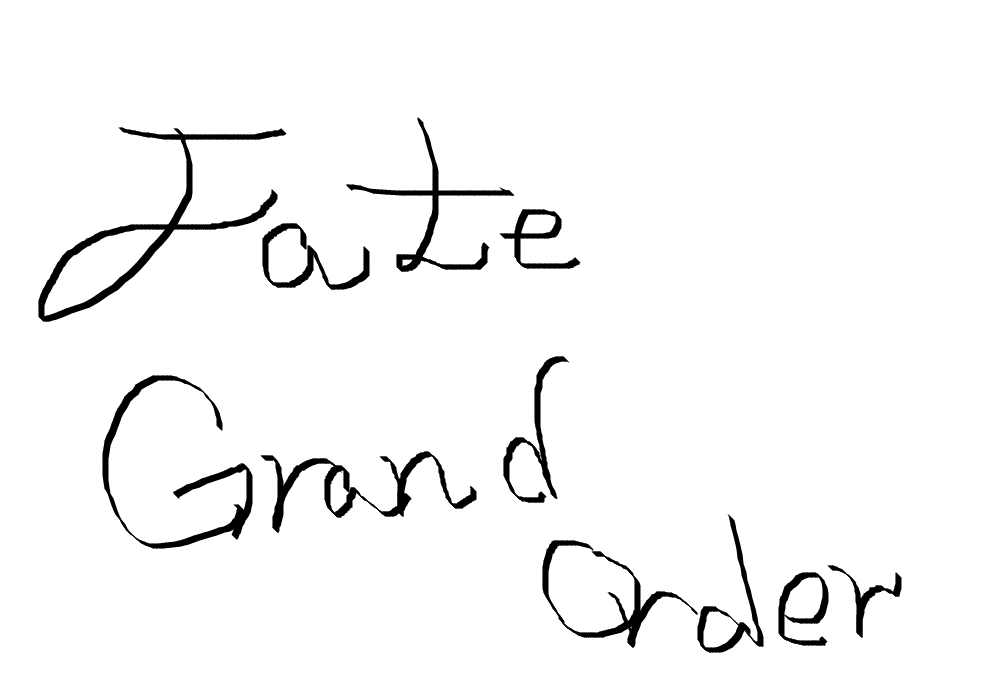 Fate
Grand
Order